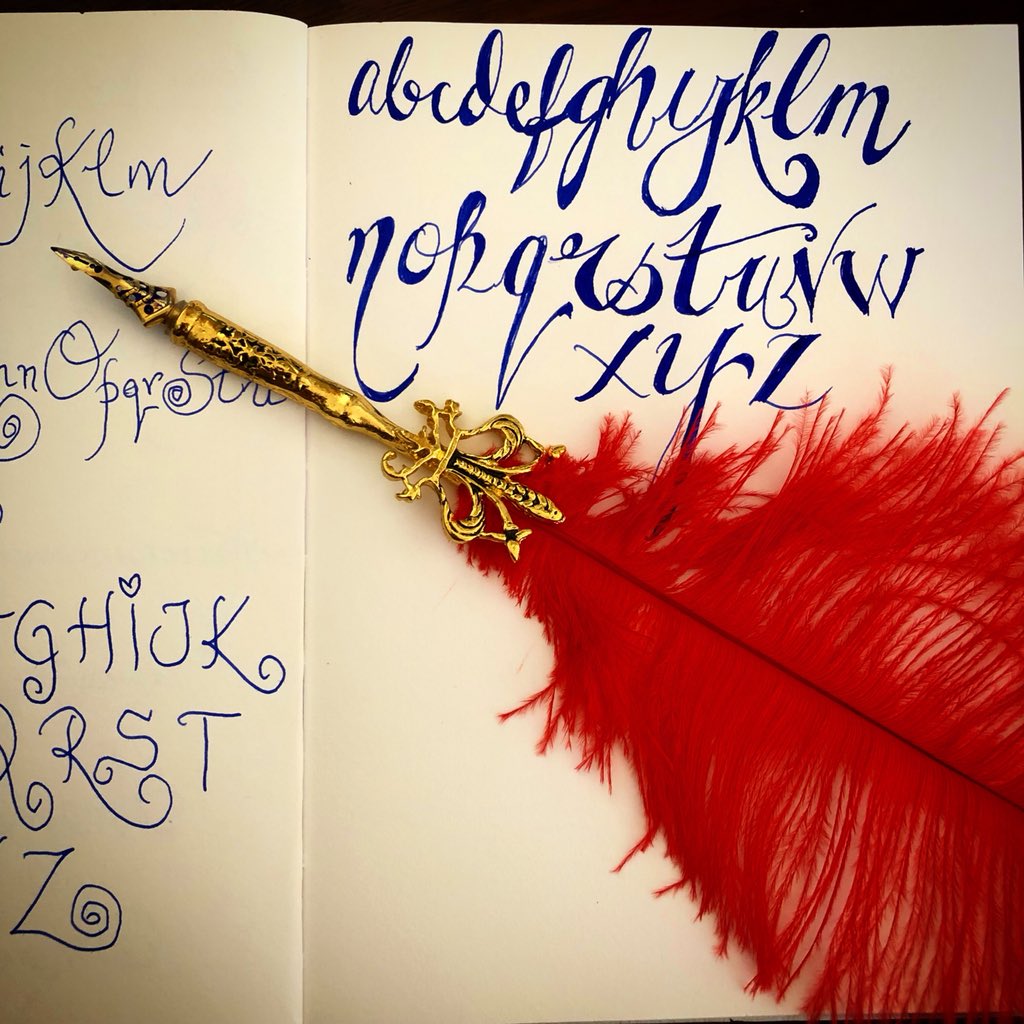 ijKlm
nnOpqrStu
GHIJK
RRST
Z
abcdefghijklm
nopqrstuvw
xyz